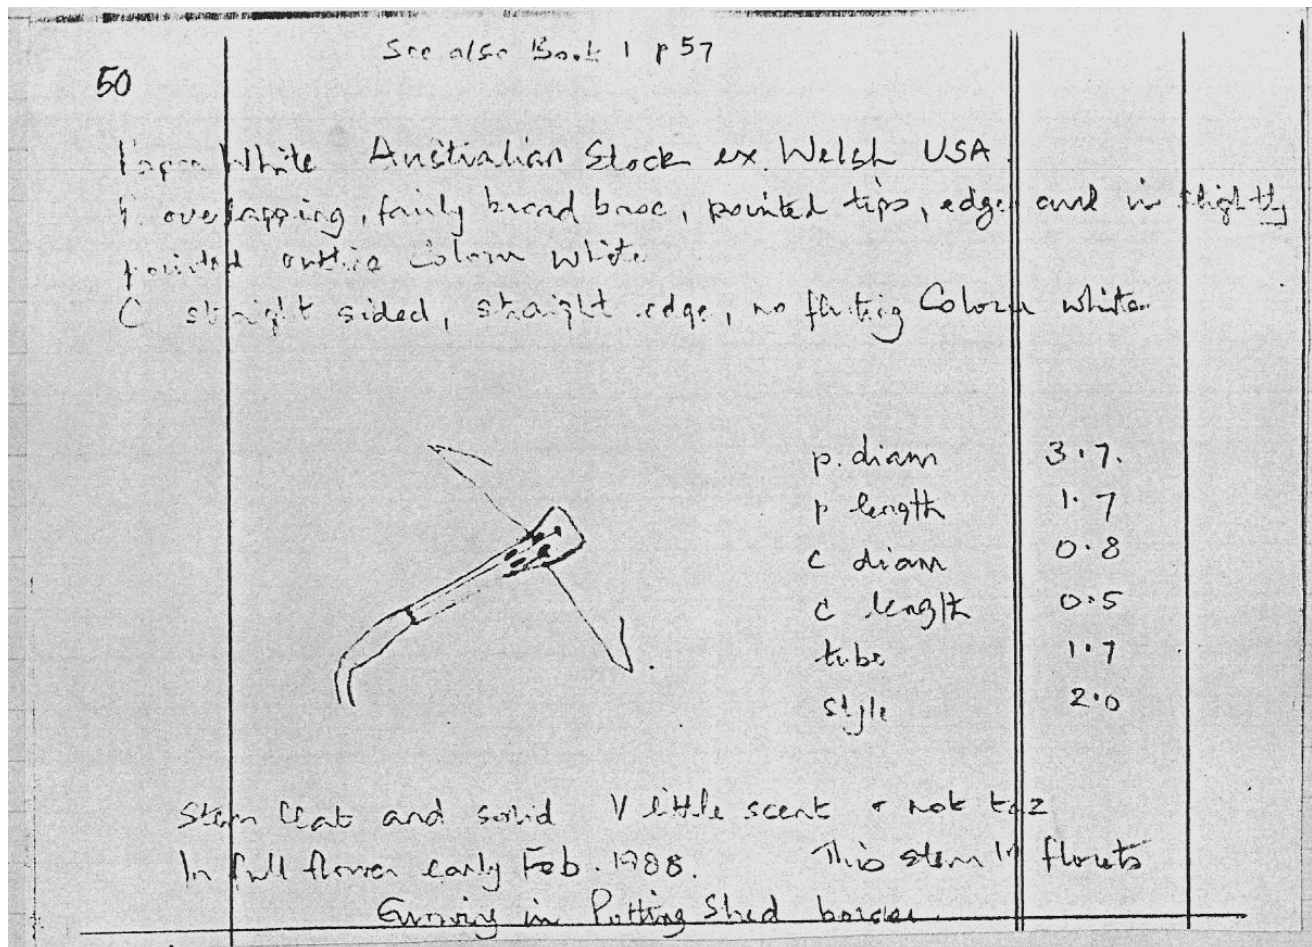 See also Book 1 p 57
50
Paper White Australian Stock ex. Welsh USA.
P. overlapping, fairly broad base, pointed tips, edges curl in slightly
pointed Colour white
C straight sided, straight edge, no fluting Colour white
p. diam 3.7.
p length 1.7
c diam 0.8
c length 0.5
tube 1.7
style 2.0
Stem flat and solid V little scent & not taz
In full flower early Feb. 1988. This stem florets
Growing in Potting Shed border.